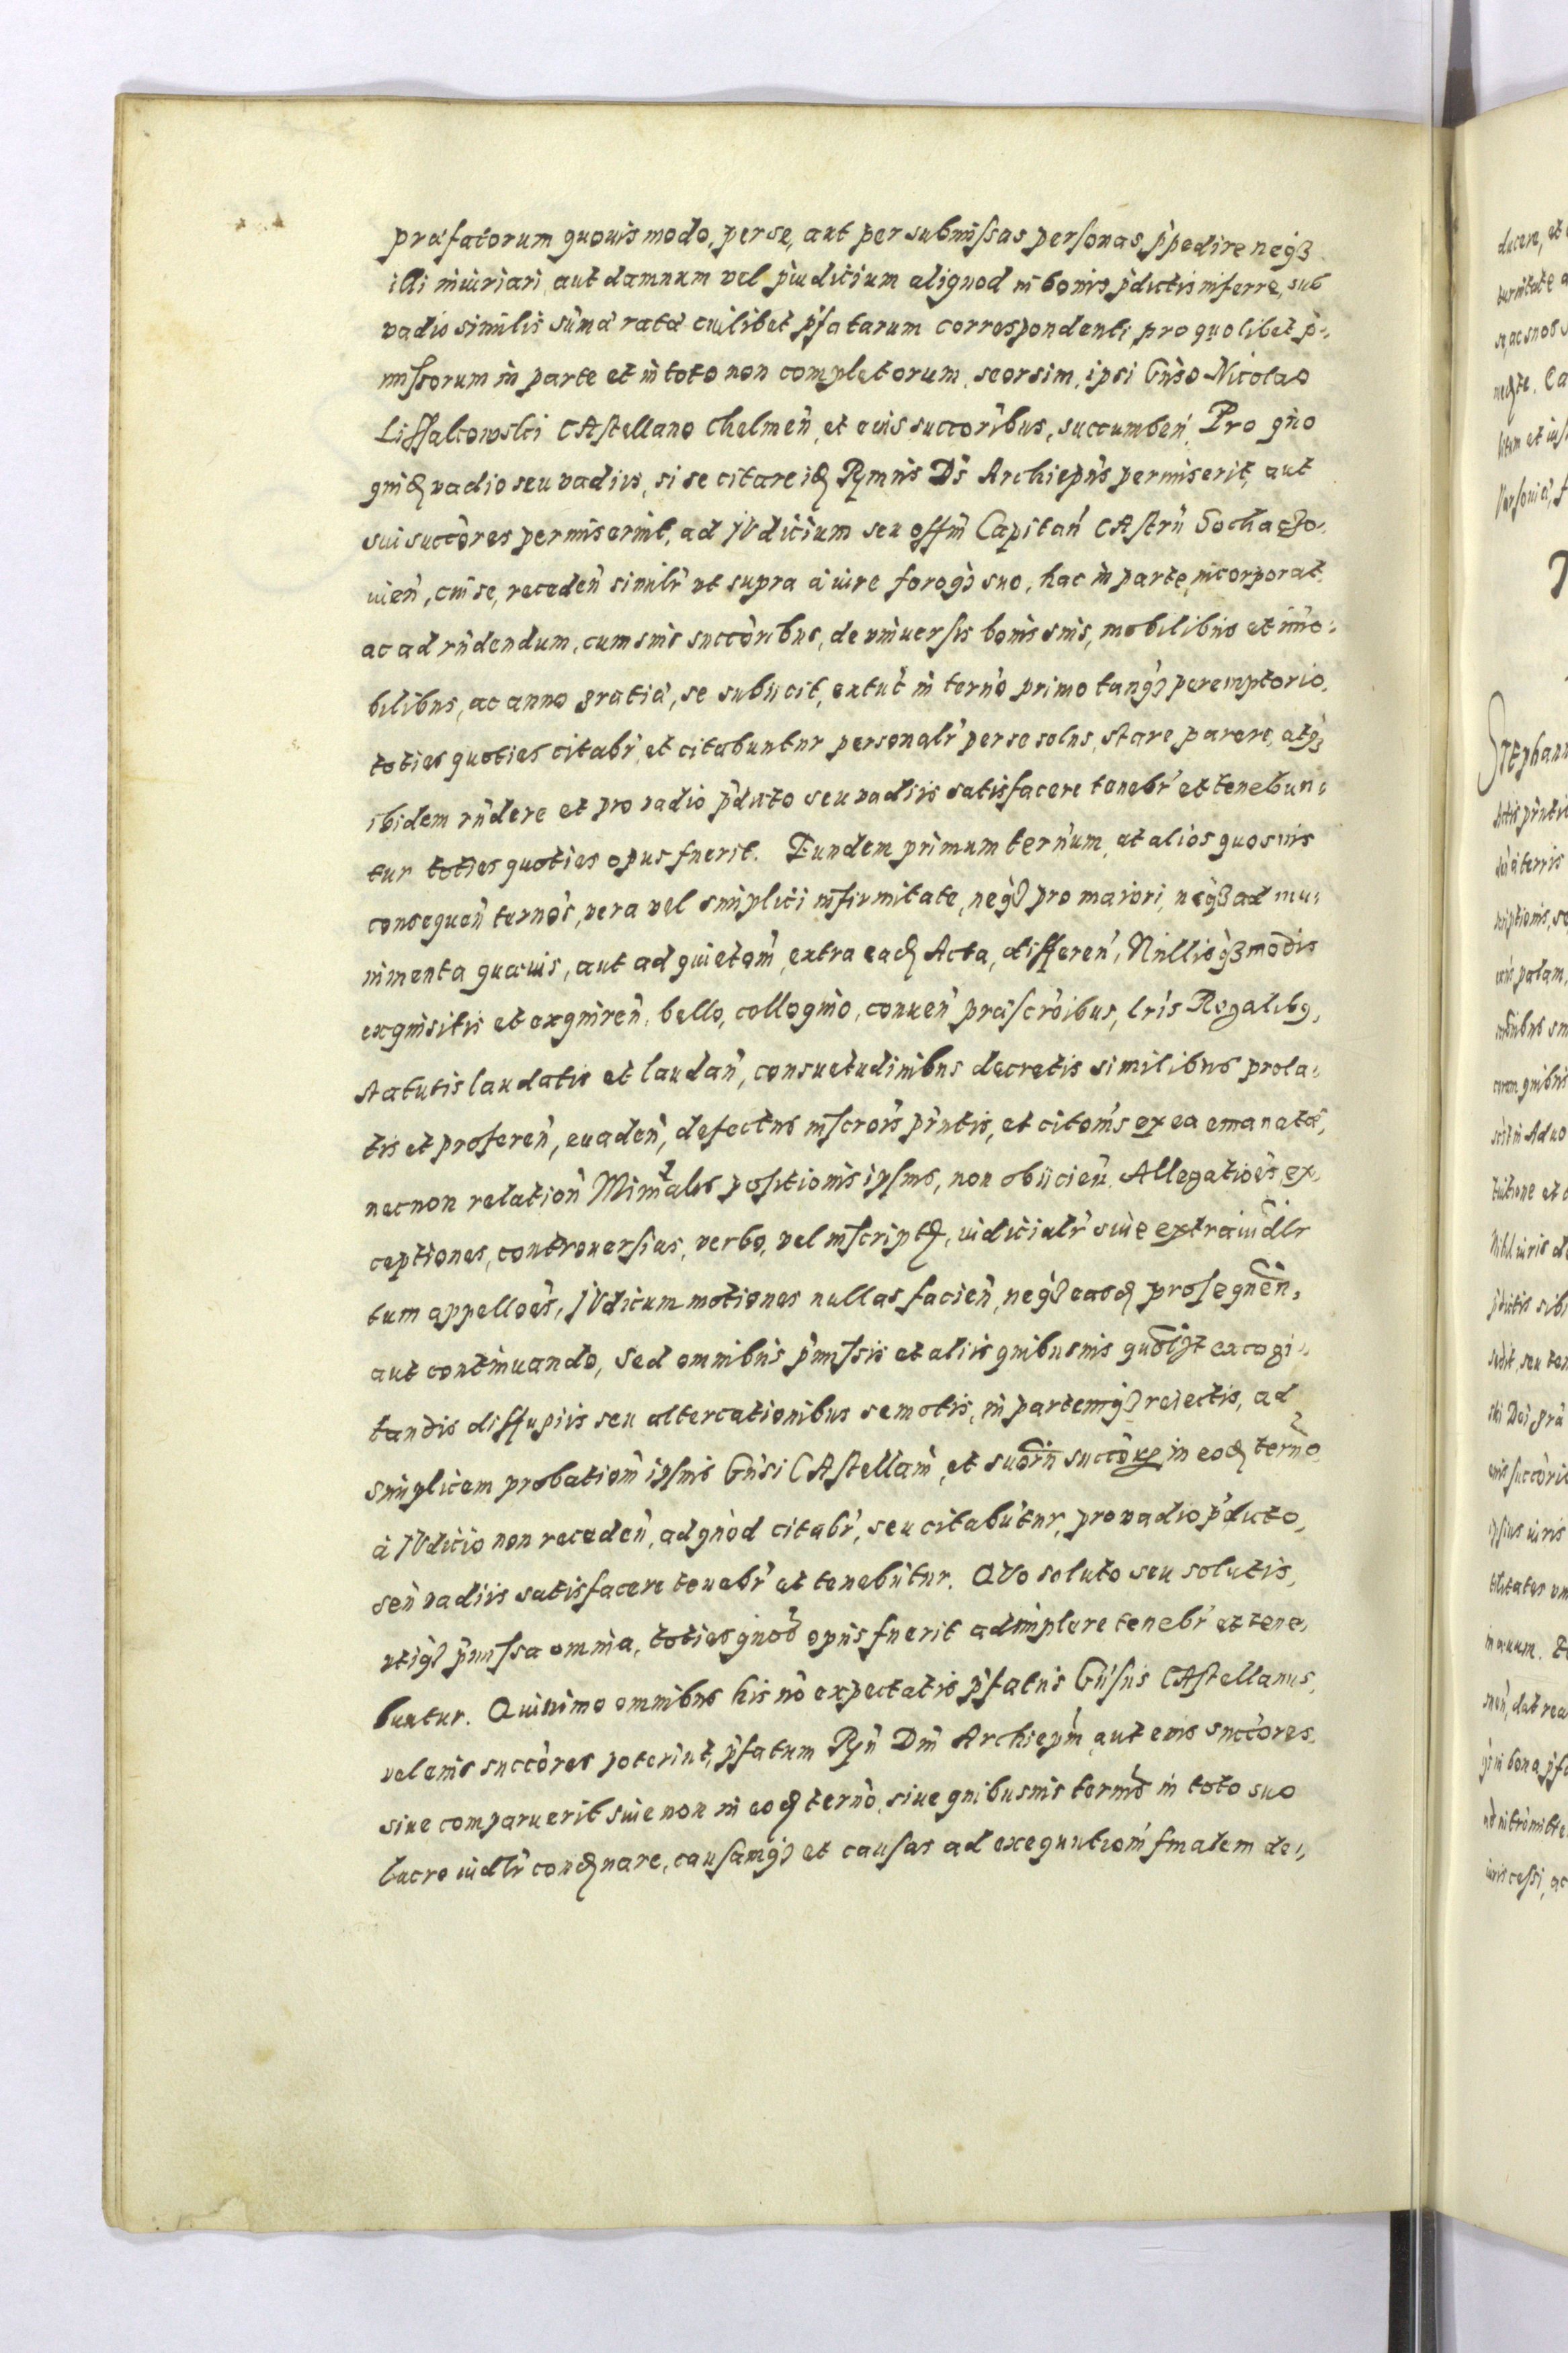 præfatorum quouis modo, per se, aut per submissas personas, p̃pedire neqз
illi iniuriari aut damnum vel p̃iudicium aliquod in bonis p̃dictis inferre, sub
vadio similis sum̃a rata cuilibet p̃fatarum correspondenti, pro quolibet p̃-
missorum in parte et in toto non completorum, seorsim, ipsi Gñso Nicolao
Lissakowski CAstellano Chelmeñ, et eius succoribus, succumbeñ. Pro quo
quidē vadio seu vadiis, si se citare idē Rṃus Dñs Archiepus permiserit, aut
sui succores permiserint, ad IVdicium seu offm̃ Capitañ CAstrñ Sochaczo-
uieñ, cui se, recedeñ similr̃ vt supra à iure foroqз suo, hac in parte, incorporat
ac ad rñdendum, cum suis succoribus, de vniuersis bonis suis, mobilibus et im̃o-
bilibus, ac anno gratiæ, se subijcit, ex tuc̃ in termo primo tanqз peremptorio,
toties quoties citabr̃ et citabuntur personalr̃ per se solus, stare parere, atqз
ibidem rñdere et pro vadio p̃dicto seu vadiis satisfacere tenebr̃ et tenebun-
tur toties quoties opus fuerit. Eundem primum termum, et alios quosuis
consequeñ termos, vera vel simplici infirmitate, neqз pro maiori, neqз ad mu-
nimenta quæuis, aut ad quietom̃, extra eadē Acta, differeñ, Nullisqз modis
exquisitis et exquireñ, bello, colloquio, conueñ præscroibus, lr̃is Regalibus,
statutis laudatis et laudañ, consuetudinibus decretis similibus prola-
tis et profereñ, euadeñ, defectus inscrois pñtis, et citom̃s ex ea emanatæ,
necnon relation̄ Minr̃alis positionis ipsius, non obijcieñ. Allegatioẽs, ex-
ceptiones, controuersias, verbo, vel inscriptē, iudicialr̃ siue extraiudlr
tum appelloẽs, IVdicum motiones nullas facieñ, neqз easdē prosequeñ,
aut continuando, sed omnibus p̃missis et aliis quibusuis quolit excogi-
tandis diffugiis seu altercationibus semotis, in partemqз reiectis, ad
simplicem probatiom̃ ipsius Gñsi CAstellani, et suorũ succorum in eodē termo
à IVdicio non recedeñ, ad quod citabr̃, seu citabũtur, pro vadio p̃dicto,
seu vadiis satisfacere tenebr̃ et tenebũtur. QVo soluto seu solutis,
vtiqз p̃missa omnia, toties quos opus fuerit adimplere tenebr̃ et tene-
buntur. Quinimo omnibus his nõ expectatis p̃fatus Gñsus CAstellanus,
vel eius succores poterint, p̃fatum Rṃ Dñm Archiepm̃ aut eius succores,
siue comparuerit siue non in eodē termo, siue quibusuis termis in toto suo
lucro iudlr̃ condēnare, causamqз et causas ad exequutiom̃ finalem de-